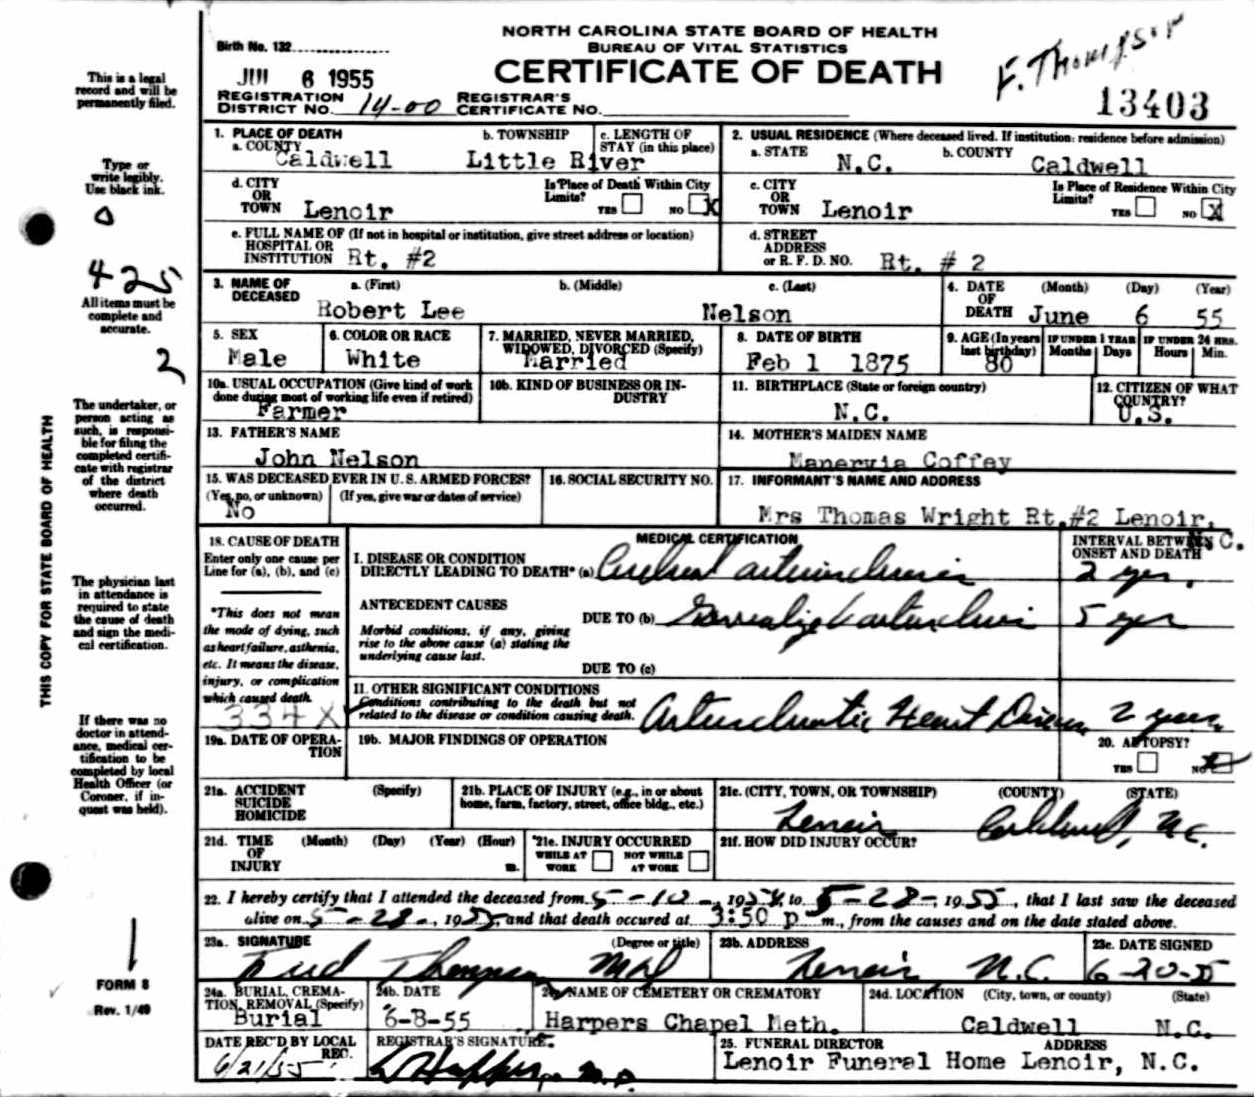 NORTH CAROLINA STATE BOARD OF HEALTH
BUREAU OF VITAL STATISTICS
CERTIFICATE OF DEATH
F. Thompson
13403
Birth No. 132
JUN 6 1955
REGISTRATION DISTRICT NO. 14-00 REGISTRAR'S CERTIFICATE NO.
This is a legal
record and will be
permanently filed.
Type or
write legibly.
Use black ink.
0
425
All items must be
complete and
accurate.
2
The undertaker, or
person acting as
such, is responsi-
ble for filing the
completed certifi-
cate with registrar
of the district
where death
occurred.
The physician last
in attendance is
required to state
the cause of death
and sign the medi-
cal certification.
If there was no
doctor in attend-
ance, medical cer-
tification to be
completed by local
Health Officer (or
Coroner, if in-
quest was held).
FORM 8
Rev. 1/49
THIS COPY FOR STATE BOARD OF HEALTH
1. PLACE OF DEATH
a. COUNTY Caldwell
b. TOWNSHIP Little River
c. LENGTH OF STAY (in this place)
2. USUAL RESIDENCE (Where deceased lived. If institution: residence before admission)
a. STATE N.C.
b. COUNTY Caldwell
d. CITY OR TOWN Lenoir
Is Place of Death Within City Limits? YES NO X
c. CITY OR TOWN Lenoir
Is Place of Residence Within City Limits? YES NO X
e. FULL NAME OF (If not in hospital or institution, give street address or location)
HOSPITAL OR INSTITUTION Rt. #2
d. STREET ADDRESS or R. F. D. NO. Rt. # 2
3. NAME OF DECEASED
a. (First) b. (Middle) c. (Last)
Robert Lee Nelson
4. DATE OF DEATH (Month) (Day) (Year)
June 6 55
5. SEX Male
6. COLOR OR RACE White
7. MARRIED, NEVER MARRIED, WIDOWED, DIVORCED (Specify) Married
8. DATE OF BIRTH Feb 1 1875
9. AGE (In years last birthday) 80
IF UNDER 1 YEAR Months Days
IF UNDER 24 HRS. Hours Min.
10a. USUAL OCCUPATION (Give kind of work done during most of working life even if retired) Farmer
10b. KIND OF BUSINESS OR INDUSTRY
11. BIRTHPLACE (State or foreign country) N.C.
12. CITIZEN OF WHAT COUNTRY? U.S.
13. FATHER'S NAME
John Nelson
14. MOTHER'S MAIDEN NAME
Manervia Coffey
15. WAS DECEASED EVER IN U.S. ARMED FORCES?
(Yes, no, or unknown) (If yes, give war or dates of service)
No
16. SOCIAL SECURITY NO.
17. INFORMANT'S NAME AND ADDRESS
Mrs Thomas Wright Rt.#2 Lenoir, N.C.
18. CAUSE OF DEATH
Enter only one cause per
Line for (a), (b), and (c)
*This does not mean
the mode of dying, such
as heart failure, asthenia,
etc. It means the disease,
injury, or complication
which caused death.
334X
MEDICAL CERTIFICATION
INTERVAL BETWEEN ONSET AND DEATH
I. DISEASE OR CONDITION
DIRECTLY LEADING TO DEATH* (a) Cerebral arteriosclerosis 2 yrs.
ANTECEDENT CAUSES
DUE TO (b) Generalized arteriosclerosis 5 yrs
Morbid conditions, if any, giving
rise to the above cause (a) stating the
underlying cause last.
DUE TO (c)
II. OTHER SIGNIFICANT CONDITIONS
Conditions contributing to the death but not
related to the disease or condition causing death.
Arteriosclerotic Heart Disease 2 years
19a. DATE OF OPERATION
19b. MAJOR FINDINGS OF OPERATION
20. AUTOPSY?
YES NO X
21a. ACCIDENT SUICIDE HOMICIDE (Specify)
21b. PLACE OF INJURY (e.g., in or about home, farm, factory, street, office bldg., etc.)
21c. (CITY, TOWN, OR TOWNSHIP) (COUNTY) (STATE)
Lenoir Caldwell, N.C.
21d. TIME OF INJURY (Month) (Day) (Year) (Hour) m.
21e. INJURY OCCURRED
WHILE AT WORK NOT WHILE AT WORK
21f. HOW DID INJURY OCCUR?
22. I hereby certify that I attended the deceased from 5-10-, 1954, to 5-28-, 1955, that I last saw the deceased
alive on 5-28-, 1955, and that death occured at 3:50 p m., from the causes and on the date stated above.
23a. SIGNATURE (Degree or title)
Fred Thompson MD
23b. ADDRESS
Lenoir N.C.
23c. DATE SIGNED
6-20-55
24a. BURIAL, CREMATION, REMOVAL (Specify) Burial
24b. DATE 6-8-55
24c. NAME OF CEMETERY OR CREMATORY
Harpers Chapel Meth.
24d. LOCATION (City, town, or county) (State)
Caldwell N.C.
DATE REC'D BY LOCAL REG.
6/21/55
REGISTRAR'S SIGNATURE
M.D.
25. FUNERAL DIRECTOR ADDRESS
Lenoir Funeral Home Lenoir, N.C.